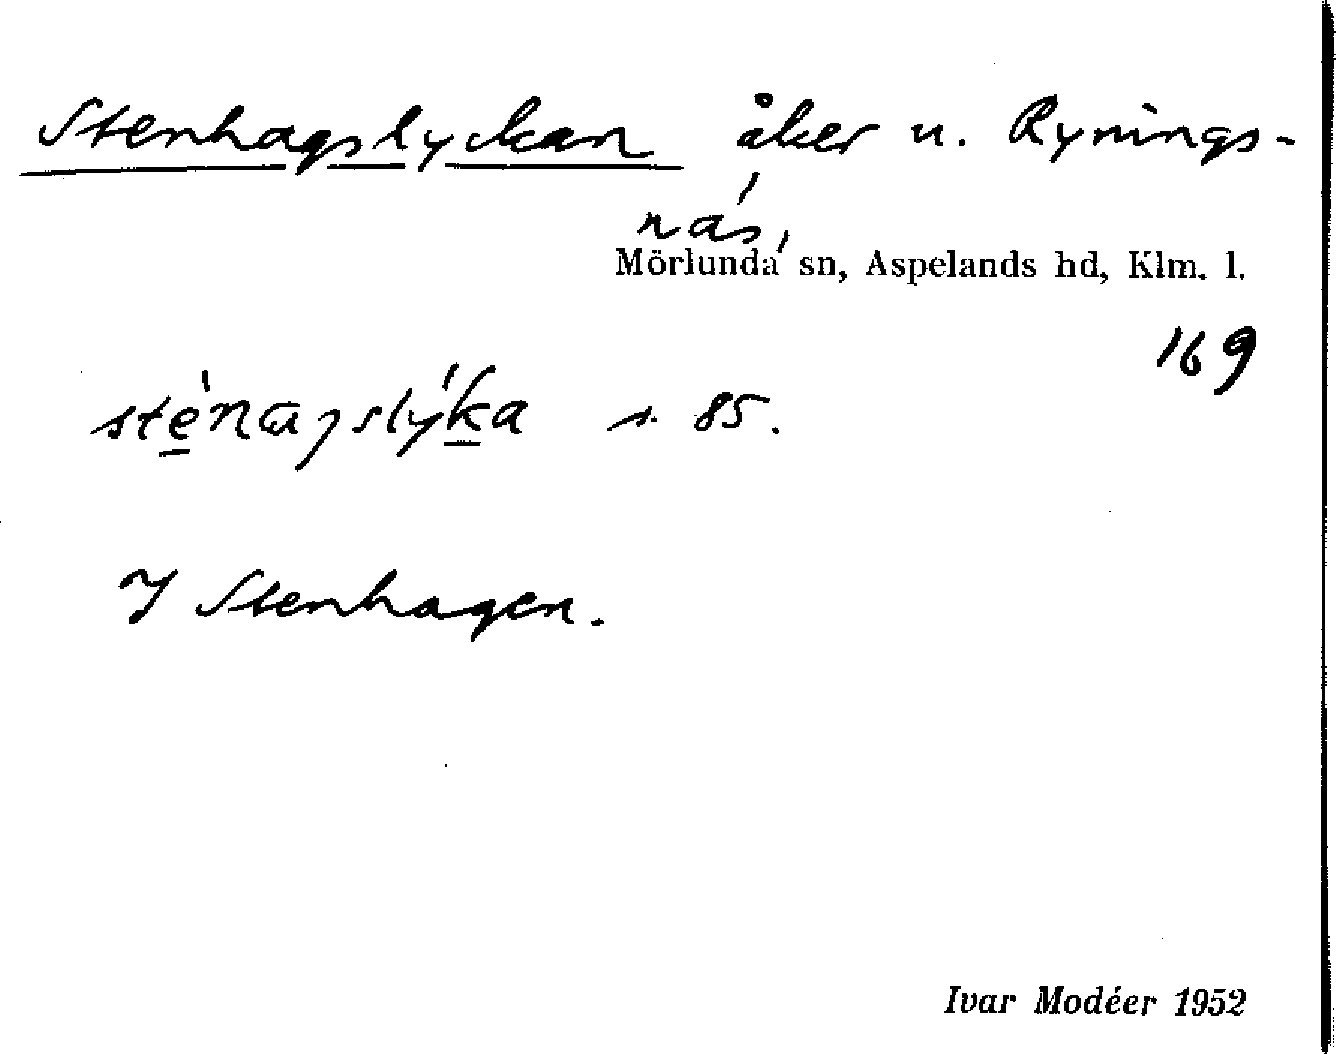 Stenhagslyckan åker u. Rynings-
näs,
Mörlunda sn, Aspelands hd, Klm. l.
169
s. 85.
I Stenhagen.
Ivar Modéer 1952